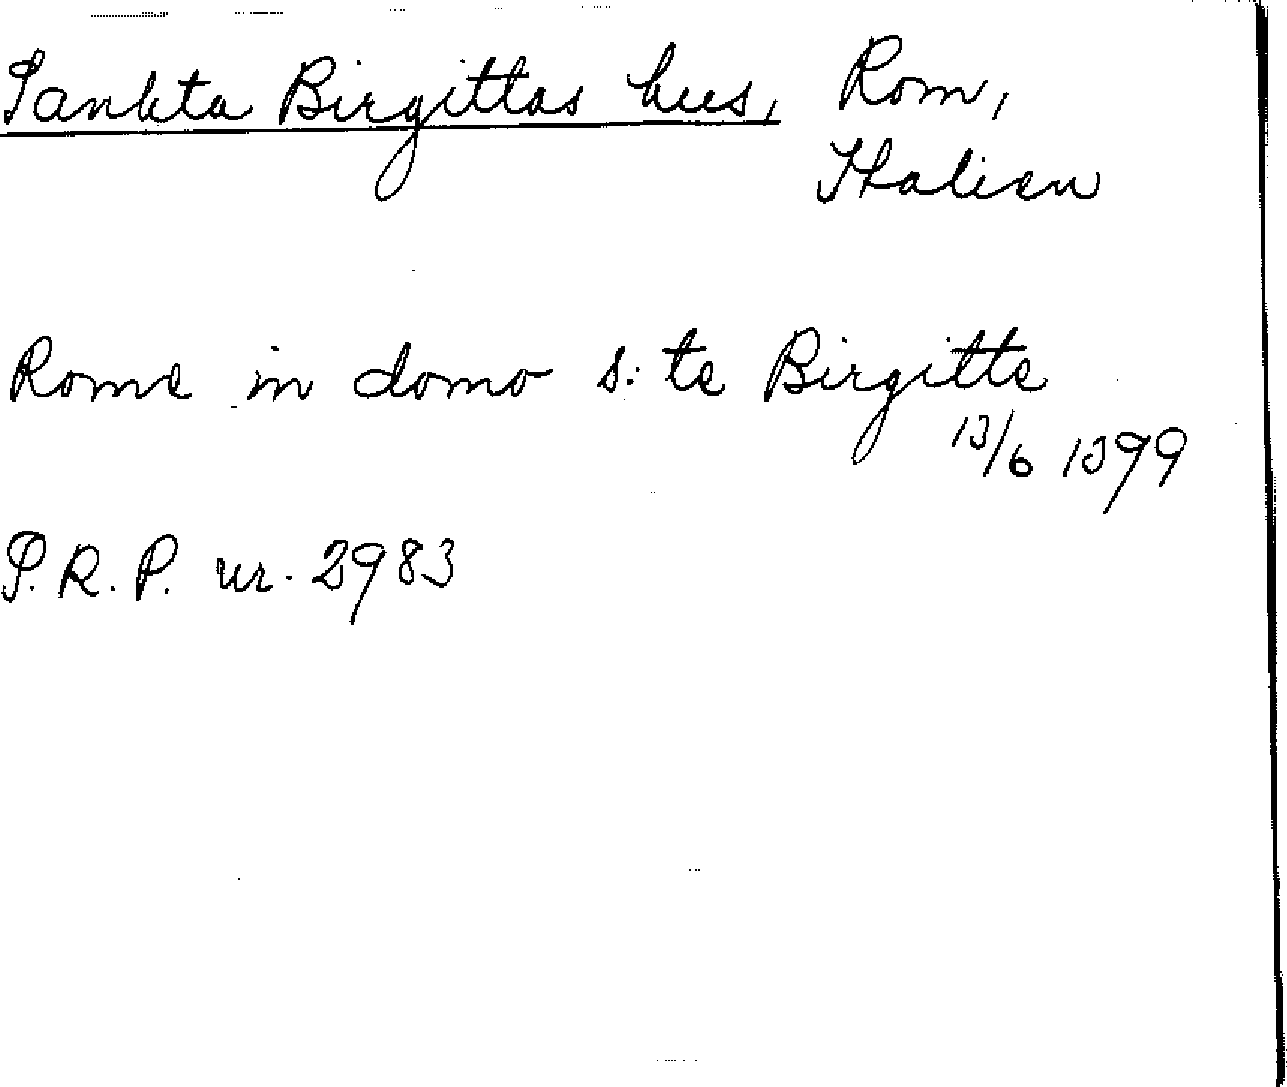 Sankta Birgittas hus, Rom,
Italien
Rome in domo s:te Birgitte
13/6 1399
S.R.P. nr. 2983